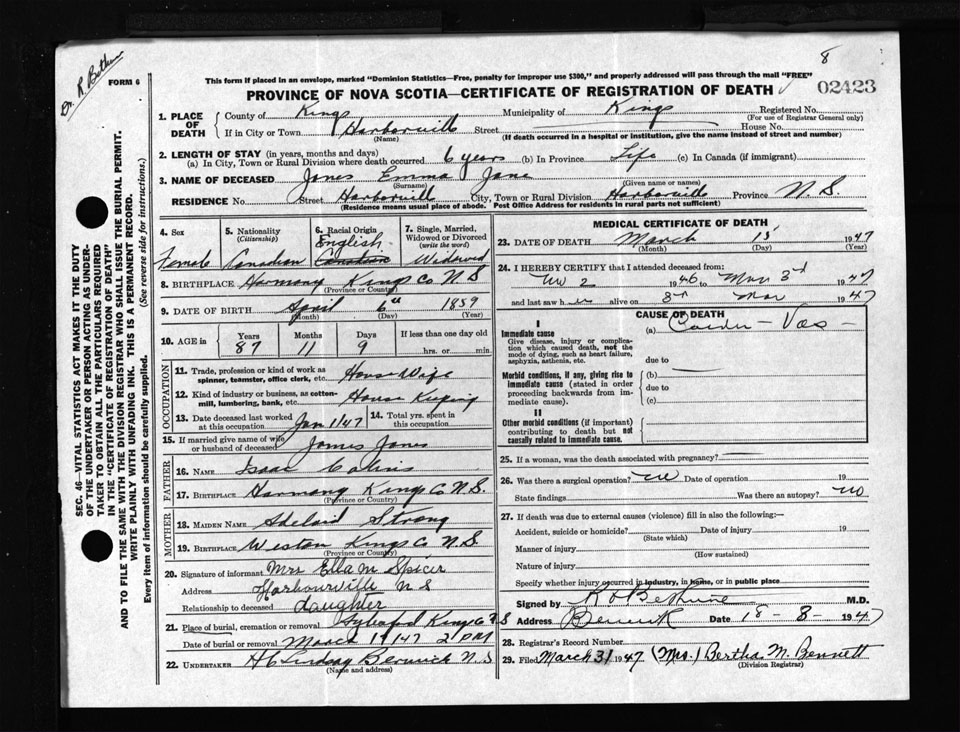 Dr. R Bethune
FORM 6
8
This form if placed in an envelope, marked "Dominion Statistics—Free, penalty for improper use $300," and properly addressed will pass through the mail "FREE"
02423
PROVINCE OF NOVA SCOTIA—CERTIFICATE OF REGISTRATION OF DEATH
SEC. 46—VITAL STATISTICS ACT MAKES IT THE DUTY
OF THE UNDERTAKER OR PERSON ACTING AS UNDER-
TAKER TO OBTAIN ALL THE PARTICULARS REQUIRED
IN THE "CERTIFICATE OF REGISTRATION OF DEATH"
AND TO FILE THE SAME WITH THE DIVISION REGISTRAR WHO SHALL ISSUE THE BURIAL PERMIT.
WRITE PLAINLY WITH UNFADING INK. THIS IS A PERMANENT RECORD.
Every item of information should be carefully supplied. (See reverse side for instructions.)
1. PLACE OF DEATH County of Kings Municipality of Kings Registered No.
(For use of Registrar General only)
If in City or Town Harborville Street House No.
(Name) (If death occurred in a hospital or institution, give the name instead of street and number)
2. LENGTH OF STAY (in years, months and days)
(a) In City, Town or Rural Division where death occurred 6 years (b) In Province Life (c) In Canada (if immigrant)
3. NAME OF DECEASED Jones Emma Jane
(Surname) (Given name or names)
RESIDENCE No. Street Harborville City, Town or Rural Division Harborville Province N.S.
(Residence means usual place of abode. Post Office Address for residents in rural parts not sufficient)
4. Sex Female
5. Nationality (Citizenship) Canadian
6. Racial Origin English Canadian
7. Single, Married, Widowed or Divorced (write the word) Widowed
8. BIRTHPLACE Harmony Kings Co N.S
(Province or Country)
9. DATE OF BIRTH April 6th 1859
(Month) (Day) (Year)
10. AGE in Years 87 Months 11 Days 9 If less than one day old hrs. or min.
OCCUPATION
11. Trade, profession or kind of work as spinner, teamster, office clerk, etc. House Wife
12. Kind of industry or business, as cotton-mill, lumbering, bank, etc. House Keeping
13. Date deceased last worked at this occupation Jan 1/47 14. Total yrs. spent in this occupation
15. If married give name of wife or husband of deceased James Jones
FATHER
16. NAME Isaac
17. BIRTHPLACE Harmony Kings Co N.S.
(Province or Country)
MOTHER
18. MAIDEN NAME Adelaid Strong
19. BIRTHPLACE Weston Kings Co N.S.
(Province or Country)
20. Signature of informant Mrs Ella M Spicer
Address Harbourville N S
Relationship to deceased daughter
21. Place of burial, cremation or removal Kings Co N S
Date of burial or removal March 17/47 2 PM
22. UNDERTAKER H C Lindsay Berwick N.S
(Name and address)
MEDICAL CERTIFICATE OF DEATH
23. DATE OF DEATH March 15, 1947
(Month) (Day) (Year)
24. I HEREBY CERTIFY that I attended deceased from:
2 1946 to Mar 3rd 1947
and last saw her alive on 3rd Mar 1947
CAUSE OF DEATH
I
Immediate cause
Give disease, injury or complication which caused death, not the mode of dying, such as heart failure, asphyxia, asthenia, etc.
(a) Cardio - Vas -
due to
Morbid conditions, if any, giving rise to immediate cause (stated in order proceeding backwards from immediate cause).
(b)
due to
(c)
II
Other morbid conditions (if important) contributing to death but not causally related to immediate cause.
25. If a woman, was the death associated with pregnancy?
26. Was there a surgical operation? no Date of operation 19
State findings Was there an autopsy? no
27. If death was due to external causes (violence) fill in also the following:—
Accident, suicide or homicide? Date of injury 19
(State which)
Manner of injury
(How sustained)
Nature of injury
Specify whether injury occurred in industry, in home, or in public place
Signed by R Bethune M.D.
Address Berwick Date 18 - 8 - 1947
28. Registrar's Record Number
29. Filed March 31 1947 (Mrs.) Bertha M. Bennett
(Division Registrar)